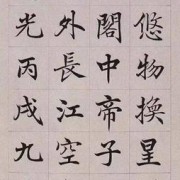 悠物換星
閣中帝子
外長江空
光丙戌九